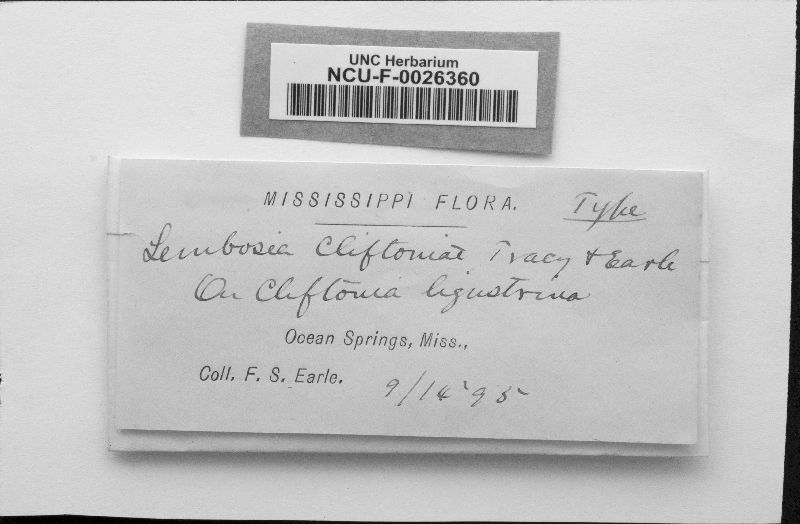 UNC Herbarium
NCU-F-0026360
MISSISSIPPI FLORA. Type
Lembosia Cliftoniae Tracy & Earle
On Cliftonia ligustrina
Ocean Springs, Miss.,
Coll. F. S. Earle. 9/14 '95